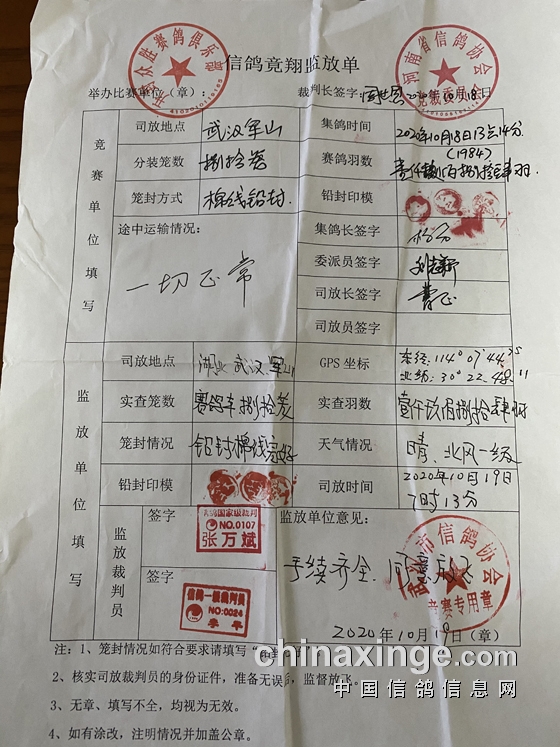 信鸽竞翔监放单
众胜赛鸽俱乐部
河南省信鸽协会
竞裁专用章
举办比赛单位(章): 裁判长签字: 2020年10月18日
竞赛单位填写
司放地点 武汉军山 集鸽时间 2020年10月18日13点14分
分装笼数 捌拾叁 赛鸽羽数 (1984)
壹仟玖佰捌拾肆羽
笼封方式 棉线铅封 铅封印模
途中运输情况: 集鸽长签字
一切正常 委派员签字
司放长签字 曹正
司放员签字
监放单位填写
司放地点 湖北武汉军山 GPS 坐标 东经:114°07′44.35
北纬:30°22.48.11
实查笼数 赛鸽车捌拾叁 实查羽数 壹仟玖佰捌拾肆羽
笼封情况 铅封棉线完好 天气情况 晴、北风一级
铅封印模 司放时间 2020年10月19日
7时13分
监放裁判员
签字 监放单位意见:
信鸽国家级裁判
NO.0107
张万斌
手续齐全.同意放飞
签字
信鸽一级裁判员
NO:0024
李平
市信鸽协会
竞赛专用章
2020年10月19日(章)
注:1、笼封情况如符合要求请填写
2、核实司放裁判员的身份证件,准备无误后,监督放飞。
3、无章、填写不全,均视为无效。
4、如有涂改,注明情况并加盖公章。
chinaxinge.com
中国信鸽信息网